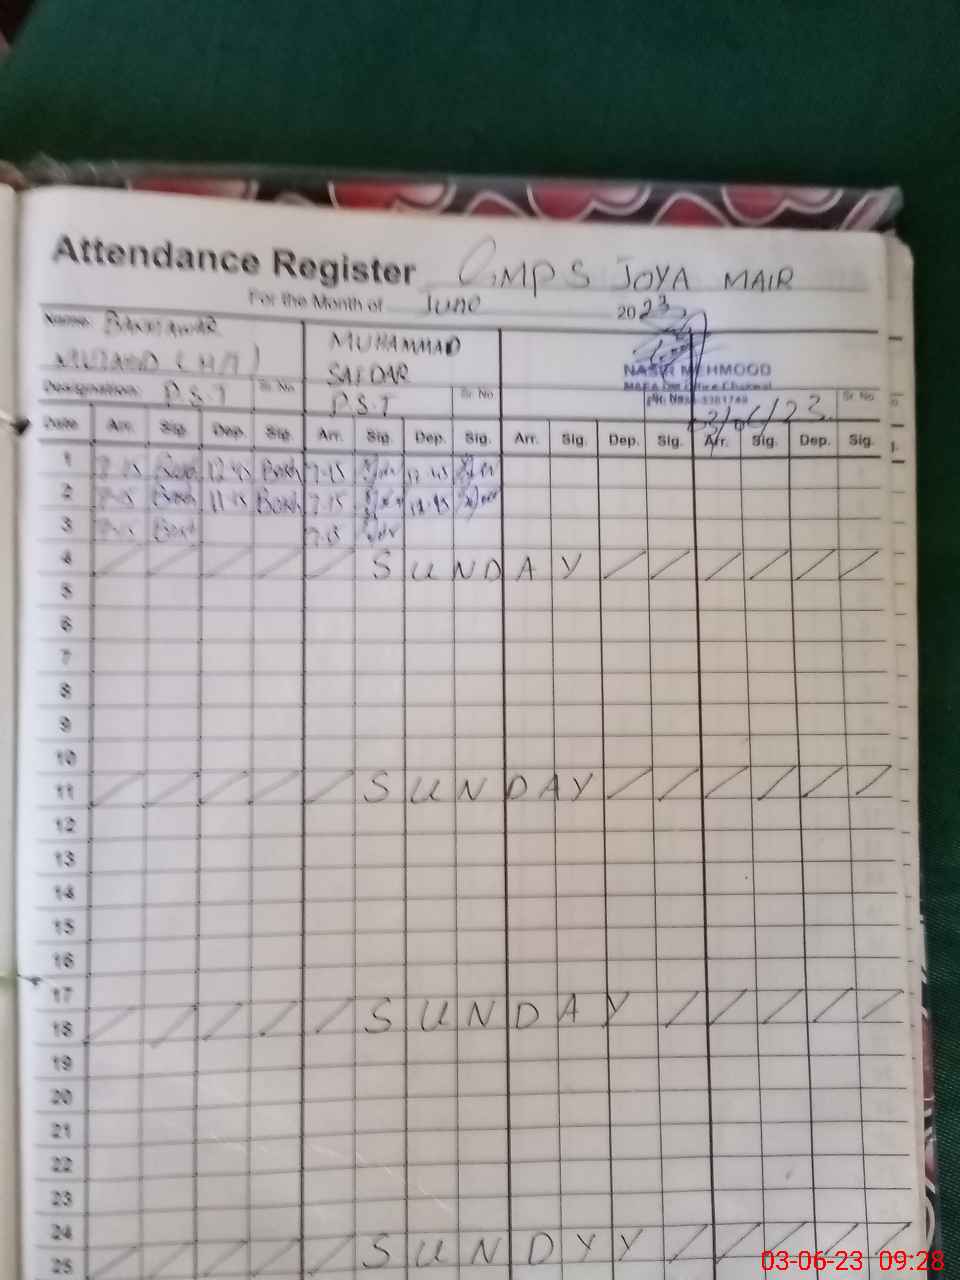 Attendance Register GMPS JOYA MAIR
For the Month of June 2023
Name: BAKHTAWAR MUHAMMAD
(HT) SAFDAR NASIR MEHMOOD
Designation: P.S.T Sr. No P.S.T Sr. No Sr. No
03/06/23
Date Arr. Sig. Dep. Sig. Arr. Sig. Dep. Sig. Arr. Sig. Dep. Sig. Arr. Sig. Dep. Sig.
1 7-15 12-45 Bakh 7-15 12-45
2 7-15 Bakh 11-45 Bakh 7-15
3 7-15 Bakh 7-15
4 SUNDAY
5
6
7
8
9
10
11 SUNDAY
12
13
14
15
16
17
18 SUNDAY
19
20
21
22
23
24
25 SUNDYY
03-06-23 09:28